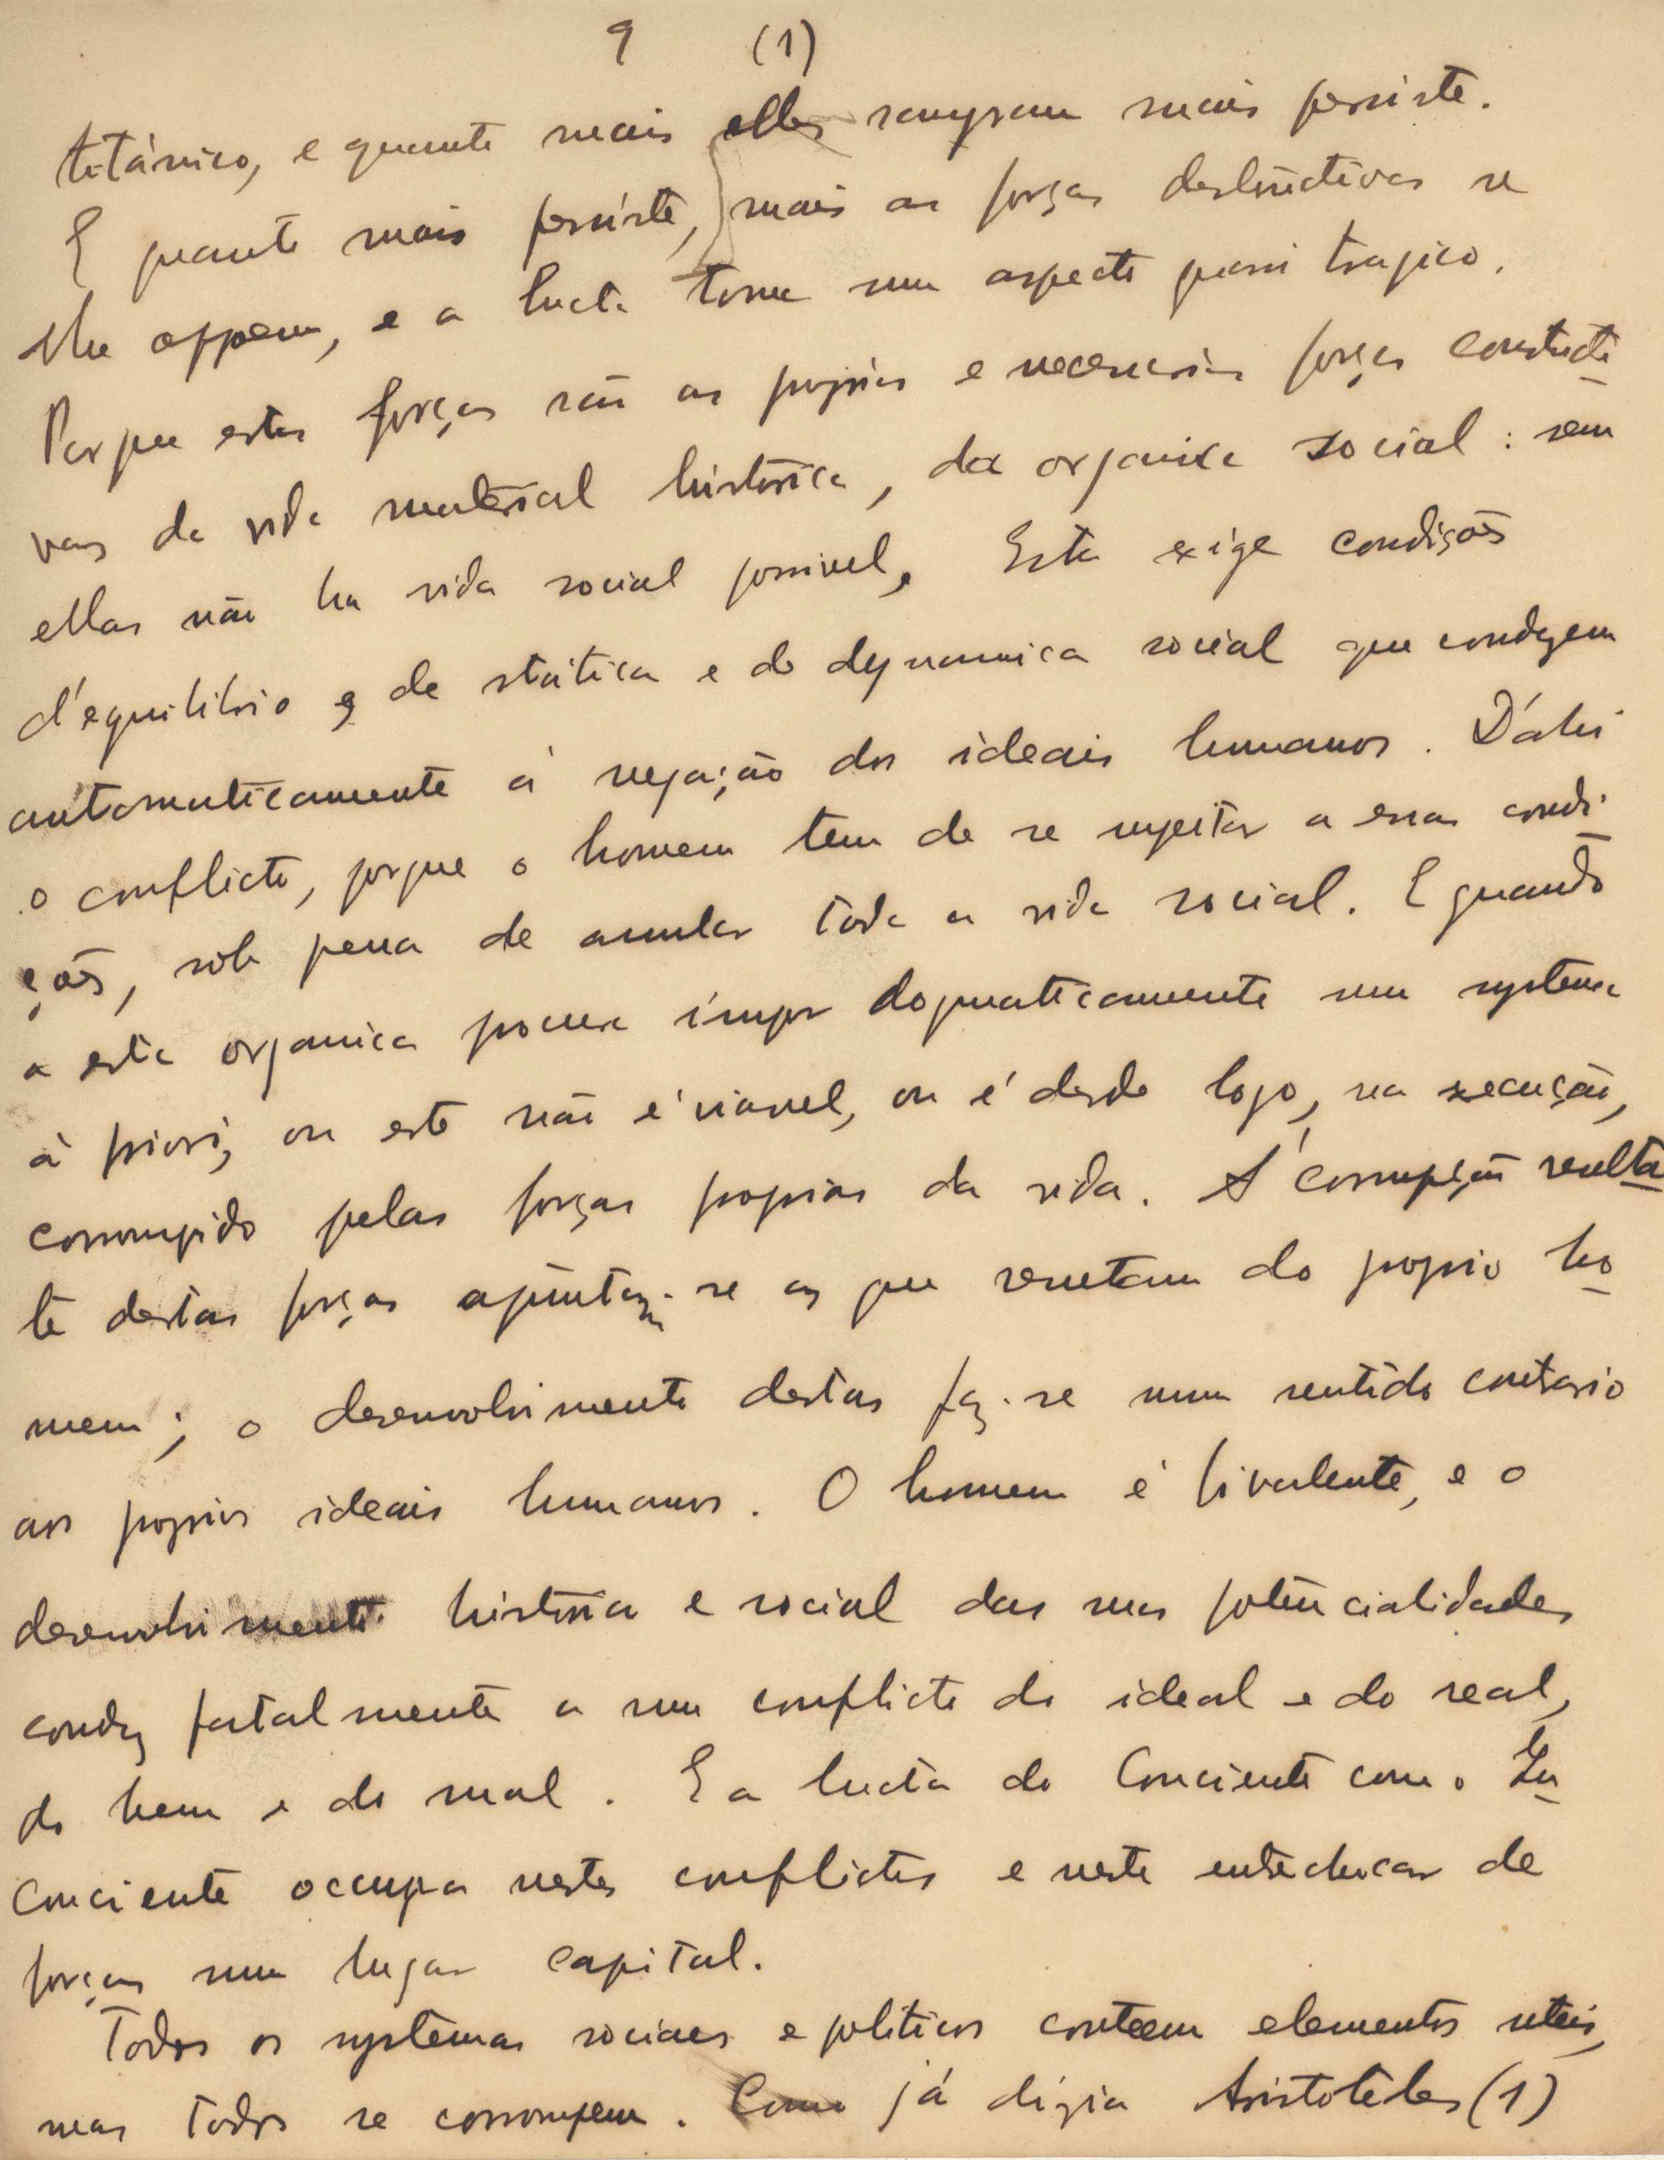 9 (1)
titánico, e quanto mais elles sangram mais persiste.
E quanto mais persiste, mais as forças destructivas se
lhe oppoem, e a lucta toma um aspecto quasi tragico.
Porque estas forças são as proprias e necessarias forças constructi-
vas da vida material historica, da organica social: sem
ellas não ha vida social possivel, Esta exige condições
d'equilibrio e de státtica e de dynamica social que conduzem
automaticamente á negação dos ideais humanos. D'áhi
o conflicto, porque o homem tem de se sujeitar a essas condi-
ções, sob pena de annular toda a vida social. E quando
a esta organica procura impor dogmaticamente um systema
à priori, ou este não é viavel, ou é desde logo, na execução,
corrompido pelas forças proprias da vida. Á corrupção resultan-
te destas forças ajuntam-se as que resultam do proprio ho-
mem; o desenvolvimento destas faz-se num sentido contrario
aos proprios ideais humanos. O homem é bivalente, e o
desenvolvimento historico e social das suas potencialidades
conduz fatalmente a um conflicto do ideal e do real,
do bem e do mal. E a lucta do Conciente com o In-
conciente occupa nestes conflictos e neste entrechocar de
forças um lugar capital.
Todos os systemas sociaes e politicos conteem elementos uteis,
mas todos se corrompem. Como já dizia Aristoteles (1)